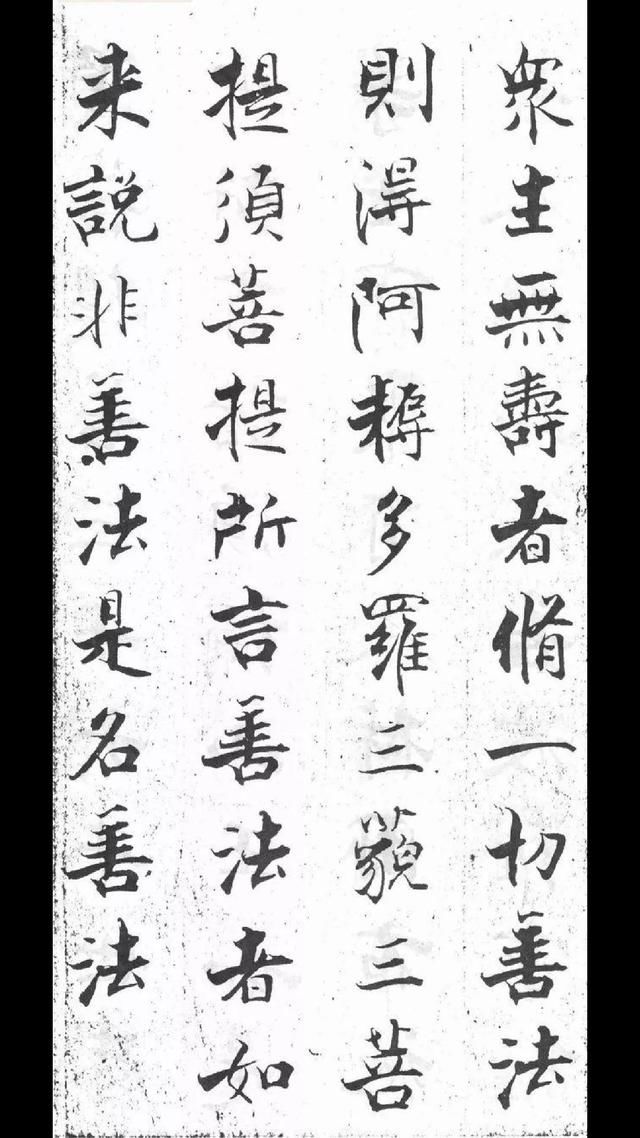 衆生無壽者脩一切善法
則得阿耨多羅三藐三菩
提須菩提所言善法者如
来說非善法是名善法